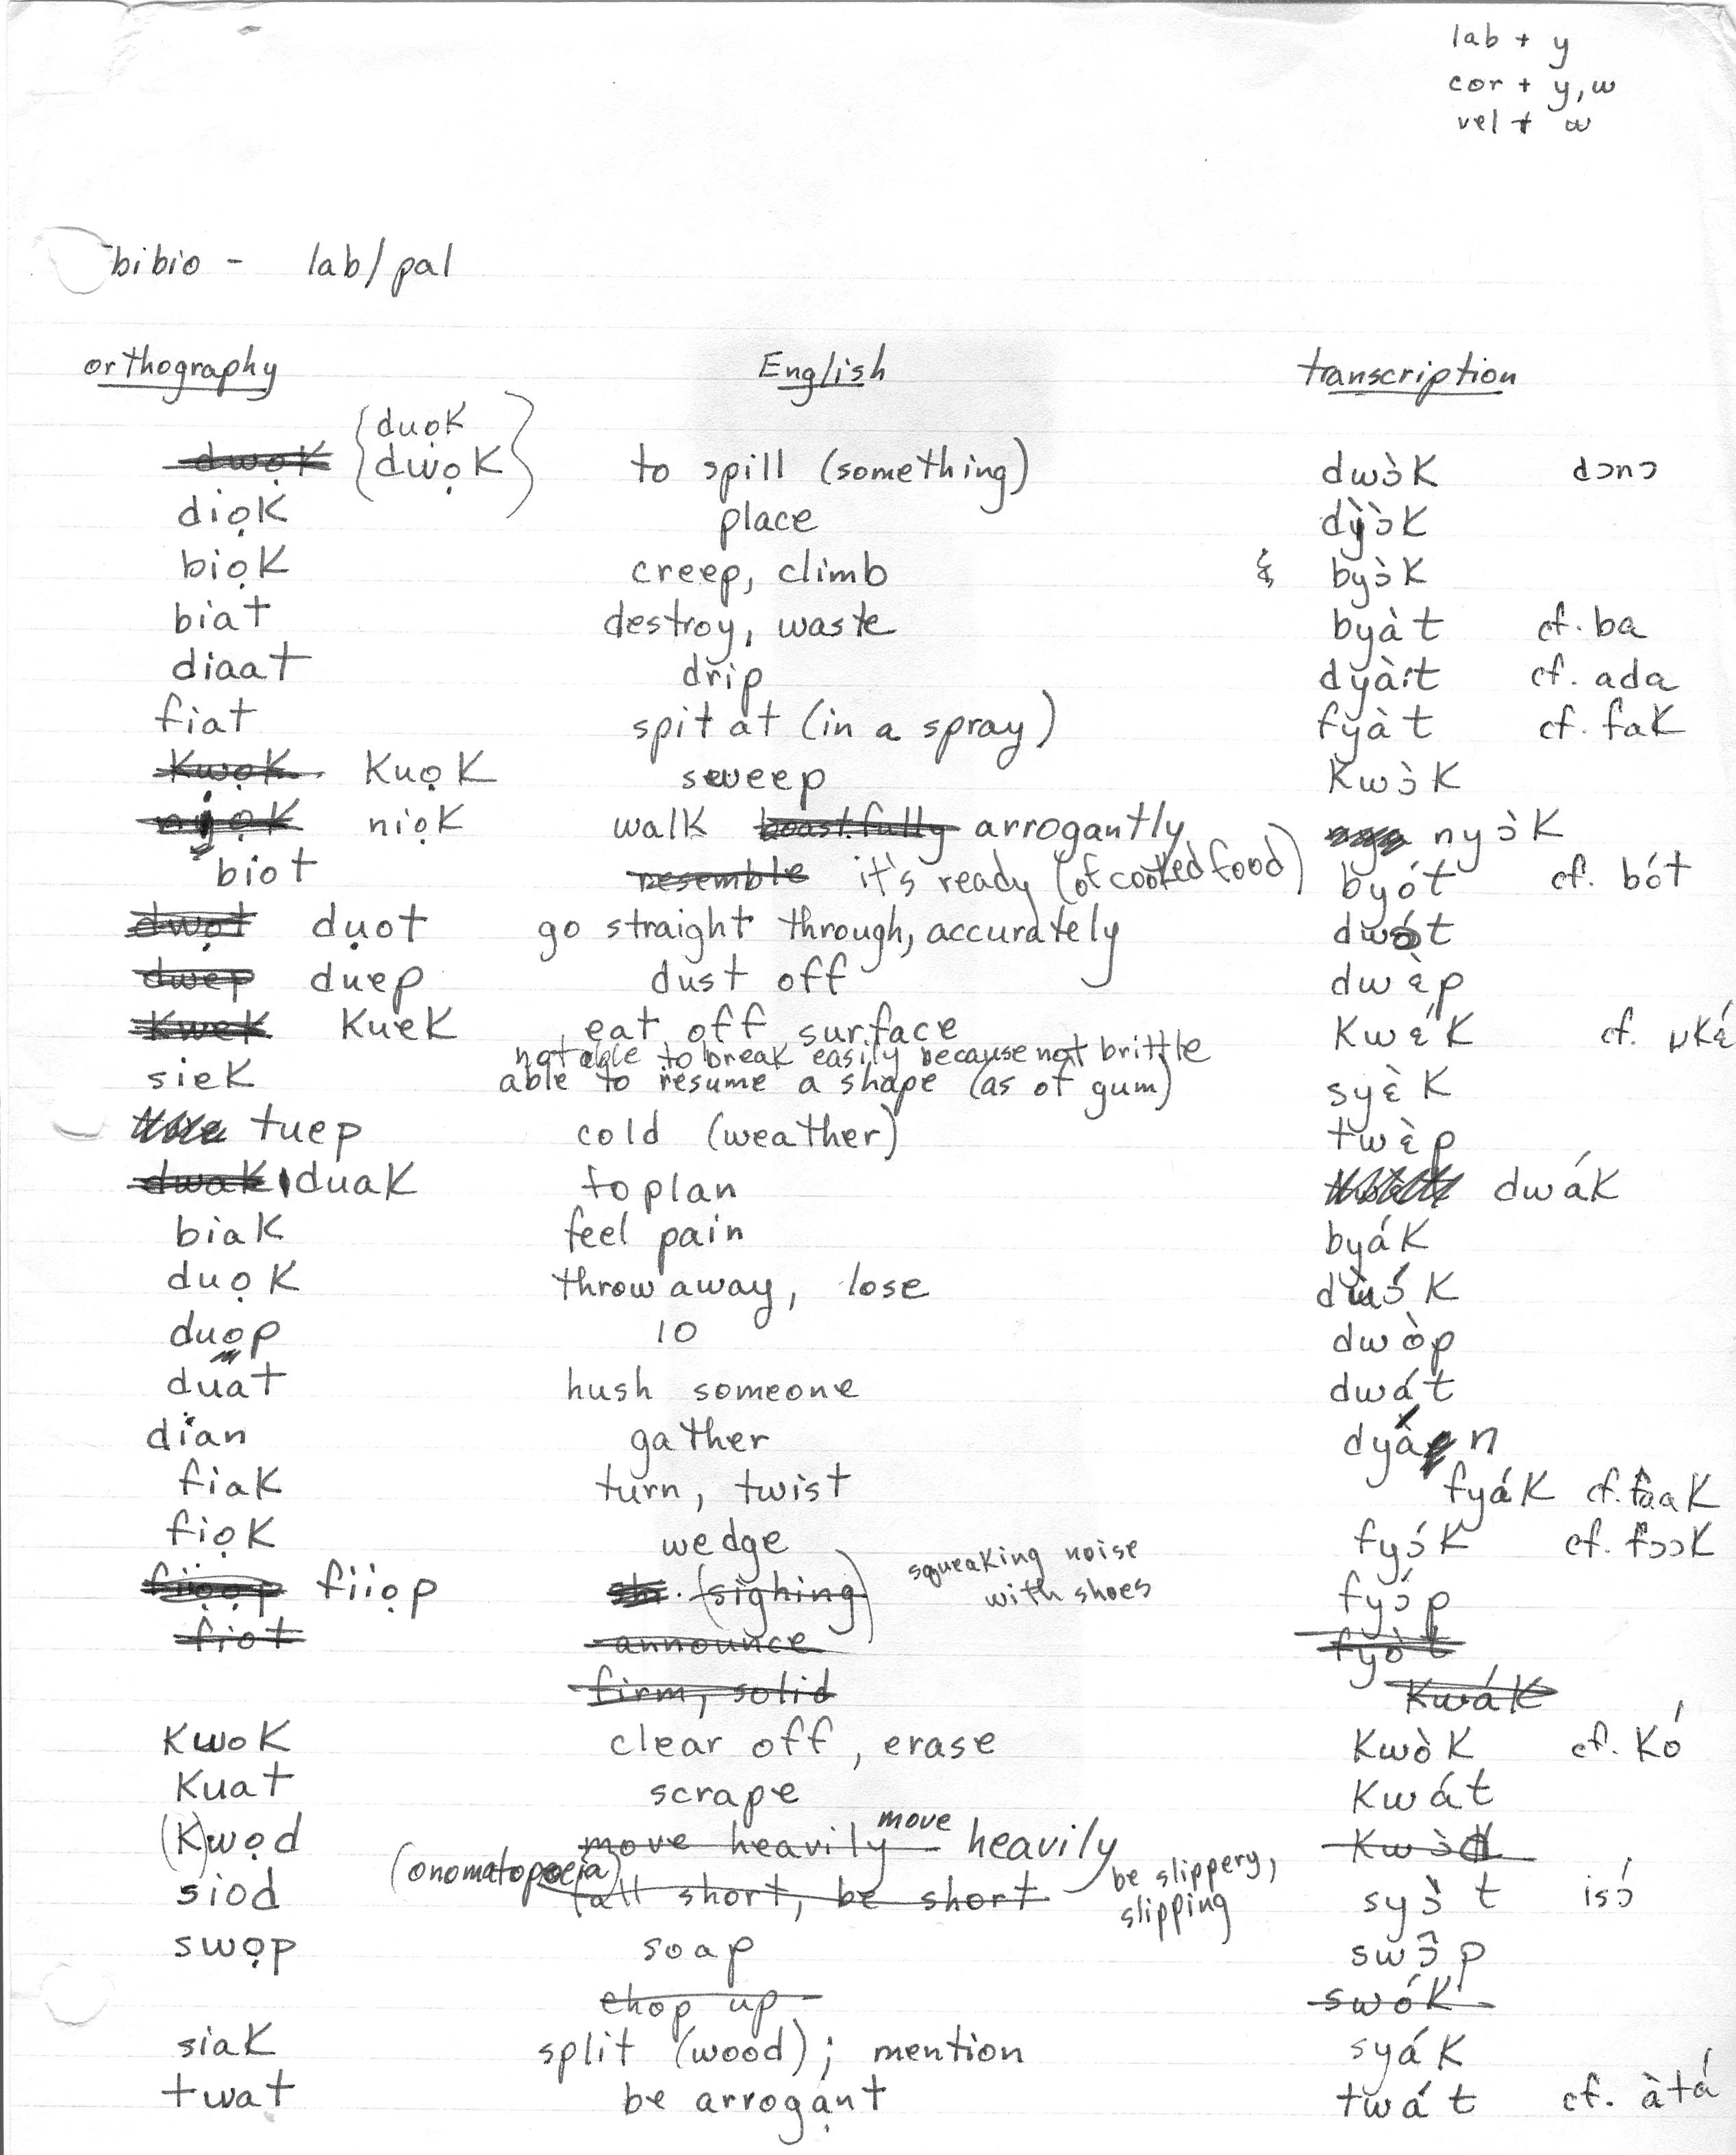 lab + y
cor + y, w
vel + w
bibio - lab/pal
orthography English transcription
duọk
dwọk dwọk to spill (something) dwɔ̀k dɔnɔ
diọk place dỳɔ̀k
biọk creep, climb & byɔ̀k
biat destroy, waste byàt cf. ba
diaat drip dyà:t cf. ada
fiat spit at (in a spray) fyàt cf. fak
kwọk kuọk sweep kwɔ̀k
niọk walk boastfully arrogantly nyɔ̀k
biot resemble it's ready (of cooked food) byót cf. bót
dwọt dụot go straight through, accurately dwót
dwep duep dust off dwɛ̀p
kwek kuek eat off surface kwɛ́k cf.
not able to break easily because not brittle
siek able to resume a shape (as of gum) syɛ̀k
tuep cold (weather) twɛ̀p
dwak duak to plan dwák
biak feel pain byák
duọk throw away, lose dẁɔ́k
duop 10 dwòp
duat hush someone dwát
dian gather dyán
fiak turn, twist fyák cf. faak
fiọk wedge fyɔ́k cf. fɔɔk
fiiọp (sighing) squeaking noise with shoes fyɔ́p
fiot announce fyòt
firm, solid kwák
kwok clear off, erase kwòk cf. kó
kuat scrape kwát
(k)wọd move heavily move heavily kwɔ̀d
siod (onomatopoeia) fall short, be short be slippery, slipping syɔ̀t isɔ́
swọp soap swɔ̂p
chop up swók
siak split (wood); mention syák
twat be arrogant twát cf. àtá